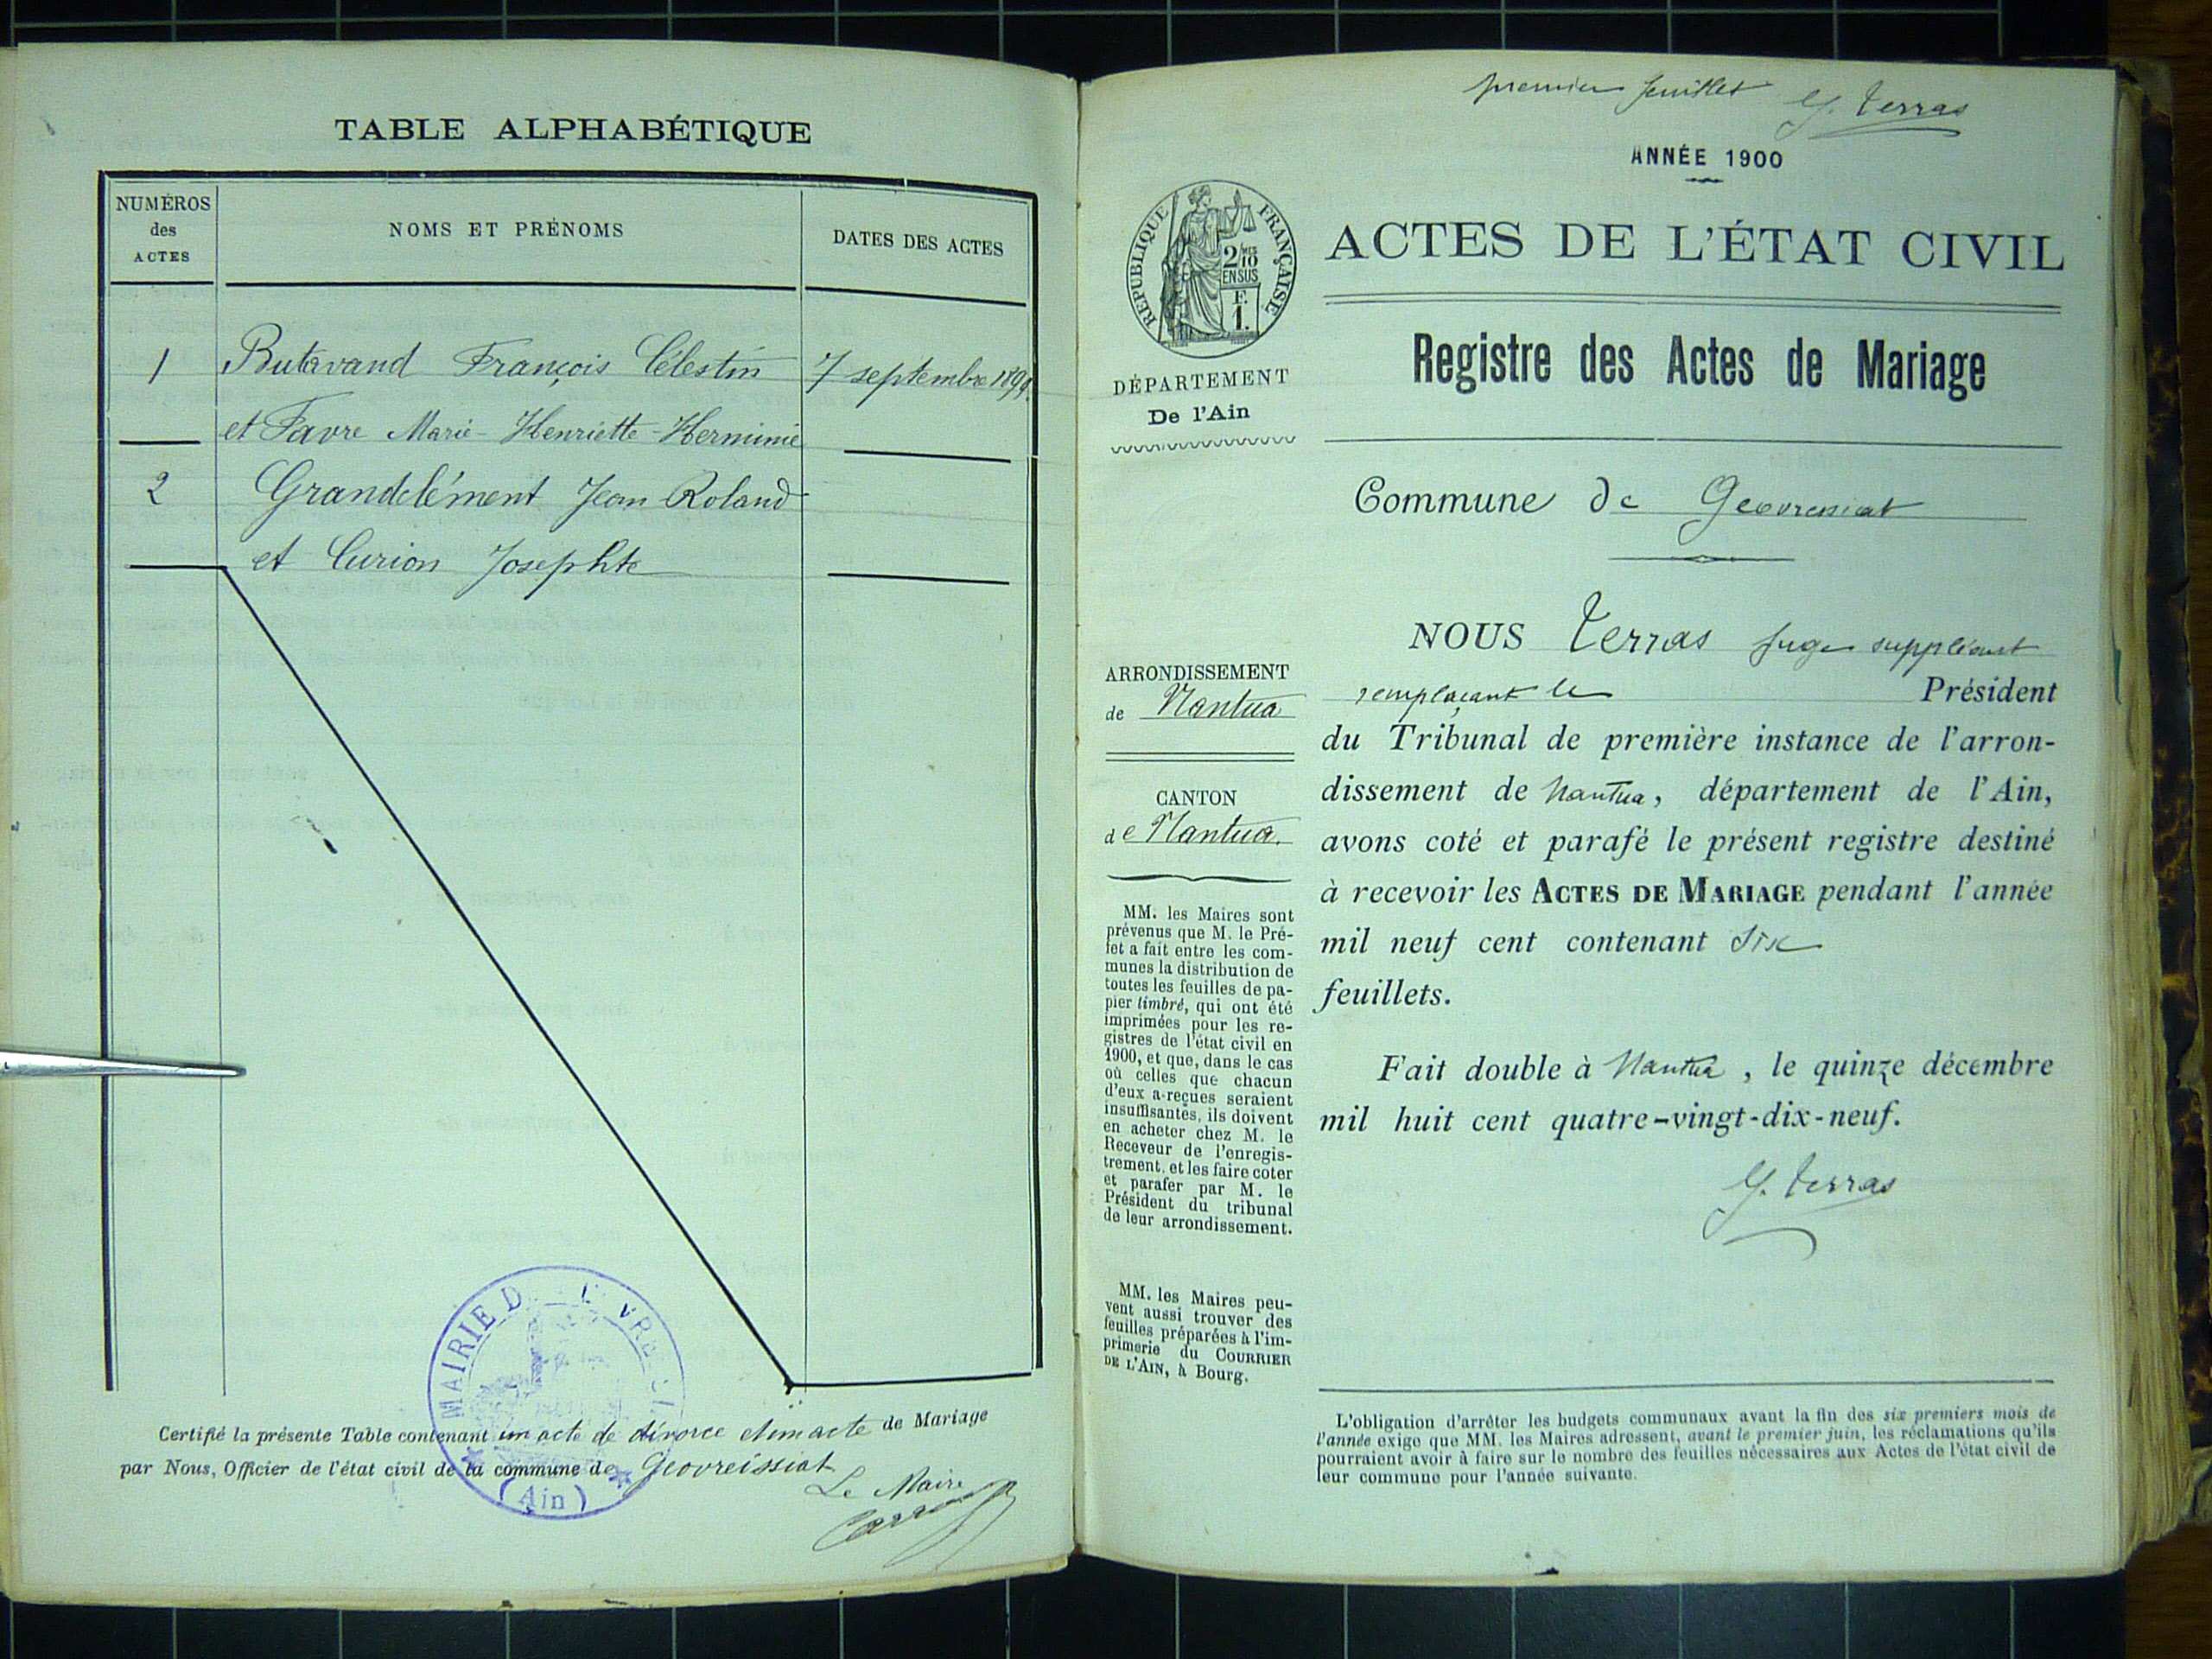 TABLE ALPHABÉTIQUE
NUMÉROS
des
ACTES
NOMS ET PRÉNOMS
DATES DES ACTES
1 Butavand François Célestin 7 septembre 1899
et Favre Marie-Henriette-Herminie
2 Grandclément Jean Roland
et Curion Josephte
MAIRIE D
(Ain)
Certifié la présente Table contenant un acte de divorce et un acte de Mariage
par Nous, Officier de l'état civil de la commune de Geovreissiat
Le Maire
premier feuillet G. Terras
ANNÉE 1900
RÉPUBLIQUE FRANÇAISE
2/10
EN SUS
F.
1.
ACTES DE L'ÉTAT CIVIL
Registre des Actes de Mariage
DÉPARTEMENT
De l'Ain
Commune de Geovressiat
ARRONDISSEMENT
de Nantua
CANTON
de Nantua.
MM. les Maires sont
prévenus que M. le Pré-
fet a fait entre les com-
munes la distribution de
toutes les feuilles de pa-
pier timbré, qui ont été
imprimées pour les re-
gistres de l'état civil en
1900, et que, dans le cas
où celles que chacun
d'eux a reçues seraient
insuffisantes, ils doivent
en acheter chez M. le
Receveur de l'enregis-
trement, et les faire coter
et parafer par M. le
Président du tribunal
de leur arrondissement.
MM. les Maires peu-
vent aussi trouver des
feuilles préparées à l'im-
primerie du COURRIER
DE L'AIN, à Bourg.
NOUS Terras juge suppléant
remplaçant le Président
du Tribunal de première instance de l'arron-
dissement de Nantua, département de l'Ain,
avons coté et parafé le présent registre destiné
à recevoir les ACTES DE MARIAGE pendant l'année
mil neuf cent contenant six
feuillets.
Fait double à Nantua, le quinze décembre
mil huit cent quatre-vingt-dix-neuf.
G. Terras
L'obligation d'arrêter les budgets communaux avant la fin des six premiers mois de
l'année exige que MM. les Maires adressent, avant le premier juin, les réclamations qu'ils
pourraient avoir à faire sur le nombre des feuilles nécessaires aux Actes de l'état civil de
leur commune pour l'année suivante.